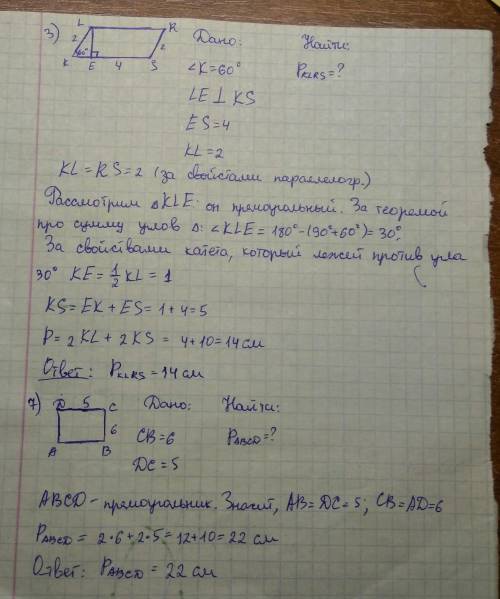 3) L R Дано: Найти:
2 2 ∠K=60° P KLRS = ?
K 60° E 4 S LE ⊥ KS
ES = 4
KL = 2
KL = RS = 2 (за свойстами паралелогр.)
Рассмотрим △KLE: он прямоуральный. За теоремой
про сумму углов △: ∠KLE = 180° - (90°+60°) = 30°.
За свойствами катета, который лежит против угла
30° KE = 1/2 KL = 1
KS = EK + ES = 1 + 4 = 5
P = 2 KL + 2 KS = 4 + 10 = 14 см
Ответ: P KLRS = 14 см
7) D 5 C Дано: Найти:
6 CB = 6 P ABCD = ?
A B DC = 5
ABCD - прямоуральник. Значит, AB = DC = 5; CB = AD = 6
P ABCD = 2•6 + 2•5 = 12 + 10 = 22 см
Ответ: P ABCD = 22 см